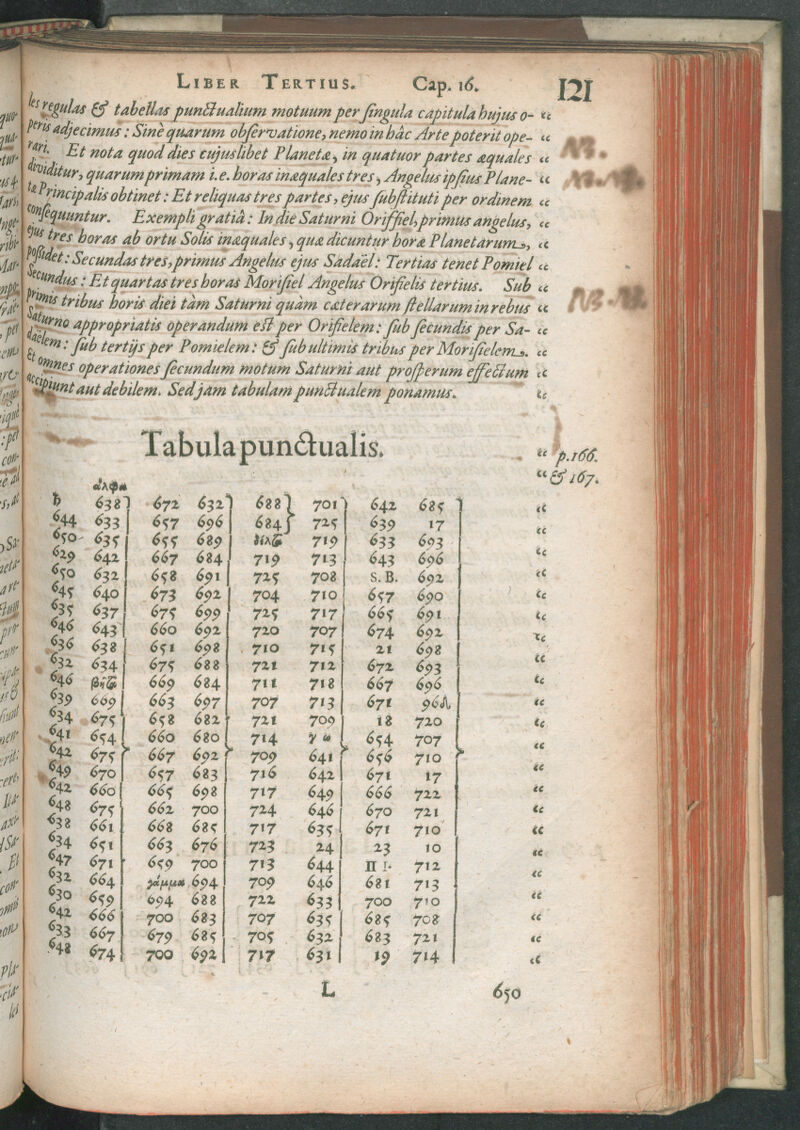 LIBER TERTIUS. Cap. 16. 121
les regulas & tabellas punctualium motuum per singula capitula hujus o- “
peris adjecimus: Sine quarum observatione, nemo in hâc Arte poterit ope- “
rari. Et nota quod dies cujuslibet Planetæ, in quatuor partes æquales “
dividitur, quarum primam i.e. horas inæquales tres, Angelus ipsius Plane- “
tæ Principalis obtinet: Et reliquas tres partes, ejus substituti per ordinem “
consequuntur. Exempli gratiâ: In die Saturni Oriffiel, primus angelus, “
ejus tres horas ab ortu Solis inæquales, quæ dicuntur horæ Planetarum, “
possidet: Secundas tres, primus Angelus ejus Sadaël: Tertias tenet Pomiel “
secundus: Et quartas tres horas Morifiel Angelus Orifielis tertius. Sub “
primis tribus horis diei tàm Saturni quàm cæterarum stellarum in rebus “
Saturno appropriatis operandum est per Orifielem: sub secundis per Sa- “
daelem: sub tertijs per Pomielem: & sub ultimis tribus per Morifielem. “
Et omnes operationes secundum motum Saturni aut prosperum effectum “
accipiunt aut debilem. Sed jam tabulam punctualem ponamus. “
Tabula punctualis. “ p.166.
“ & 167.
ἄλφα
♄ 638 672 632 688 701 642 685 “
644 633 657 696 684 725 639 17
650 635 655 689 δέλτα 719 633 693 “
629 642 667 684 719 713 643 696 “
650 632 658 691 725 708 S. B. 692 “
645 640 673 692 704 710 657 690 “
635 637 675 699 725 717 665 691 “
646 643 660 692 720 707 674 692 “
636 638 651 698 710 715 21 698
632 634 675 688 721 712 672 693 “
646 βῆτα 669 684 711 718 667 696 “
639 669 663 697 707 713 671 96 “
634 675 658 682 721 709 18 720 “
641 654 660 680 714 γ ω 654 707
642 675 667 692 709 641 656 710 “
649 670 657 683 716 642 671 17 “
642 660 665 698 717 649 666 722
648 675 662 700 724 646 670 721 “
638 661 668 685 717 635 671 710 “
634 651 663 676 723 24 23 10 “
647 671 659 700 713 644 II I. 712
632 664 γάμμα 694 709 646 681 713 “
630 659 694 688 722 633 700 710 “
642 666 700 683 707 635 685 708 “
633 667 679 685 705 632 683 721 “
648 674 700 692 717 631 19 714 “
L 650